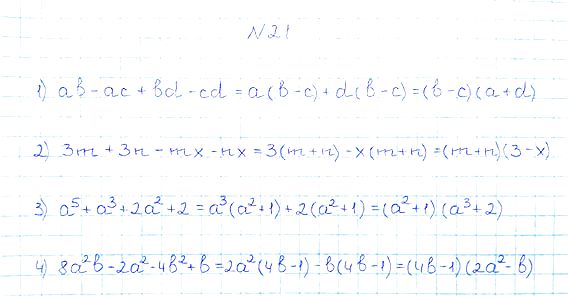 N21
1) ab - ac + bd - cd = a(b - c) + d(b - c) = (b - c)(a + d)
2) 3m + 3n - mx - nx = 3(m + n) - x(m + n) = (m + n)(3 - x)
3) a⁵ + a³ + 2a² + 2 = a³(a² + 1) + 2(a² + 1) = (a² + 1)(a³ + 2)
4) 8a²b - 2a² - 4b² + b = 2a²(4b - 1) - b(4b - 1) = (4b - 1)(2a² - b)